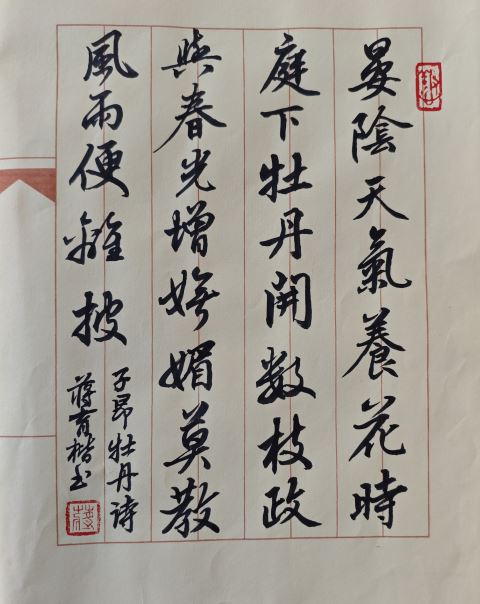 晏陰天氣養花時
庭下牡丹開數枝政
與春光增嫵媚莫教
風雨便離披
子昂牡丹詩
蔣育楷书